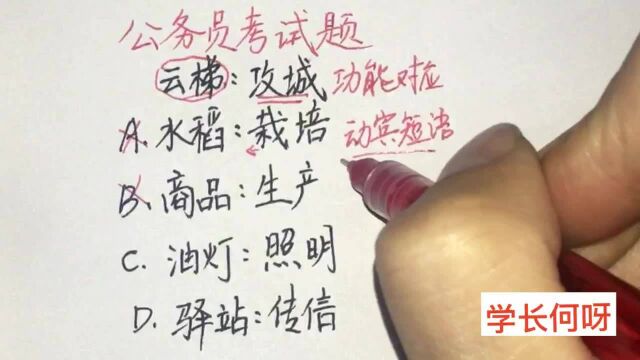 公务员考试题
云梯:攻城 功能对应
A.水稻:栽培 动宾短语
B.商品:生产
C.油灯:照明
D.驿站:传信
学长何呀